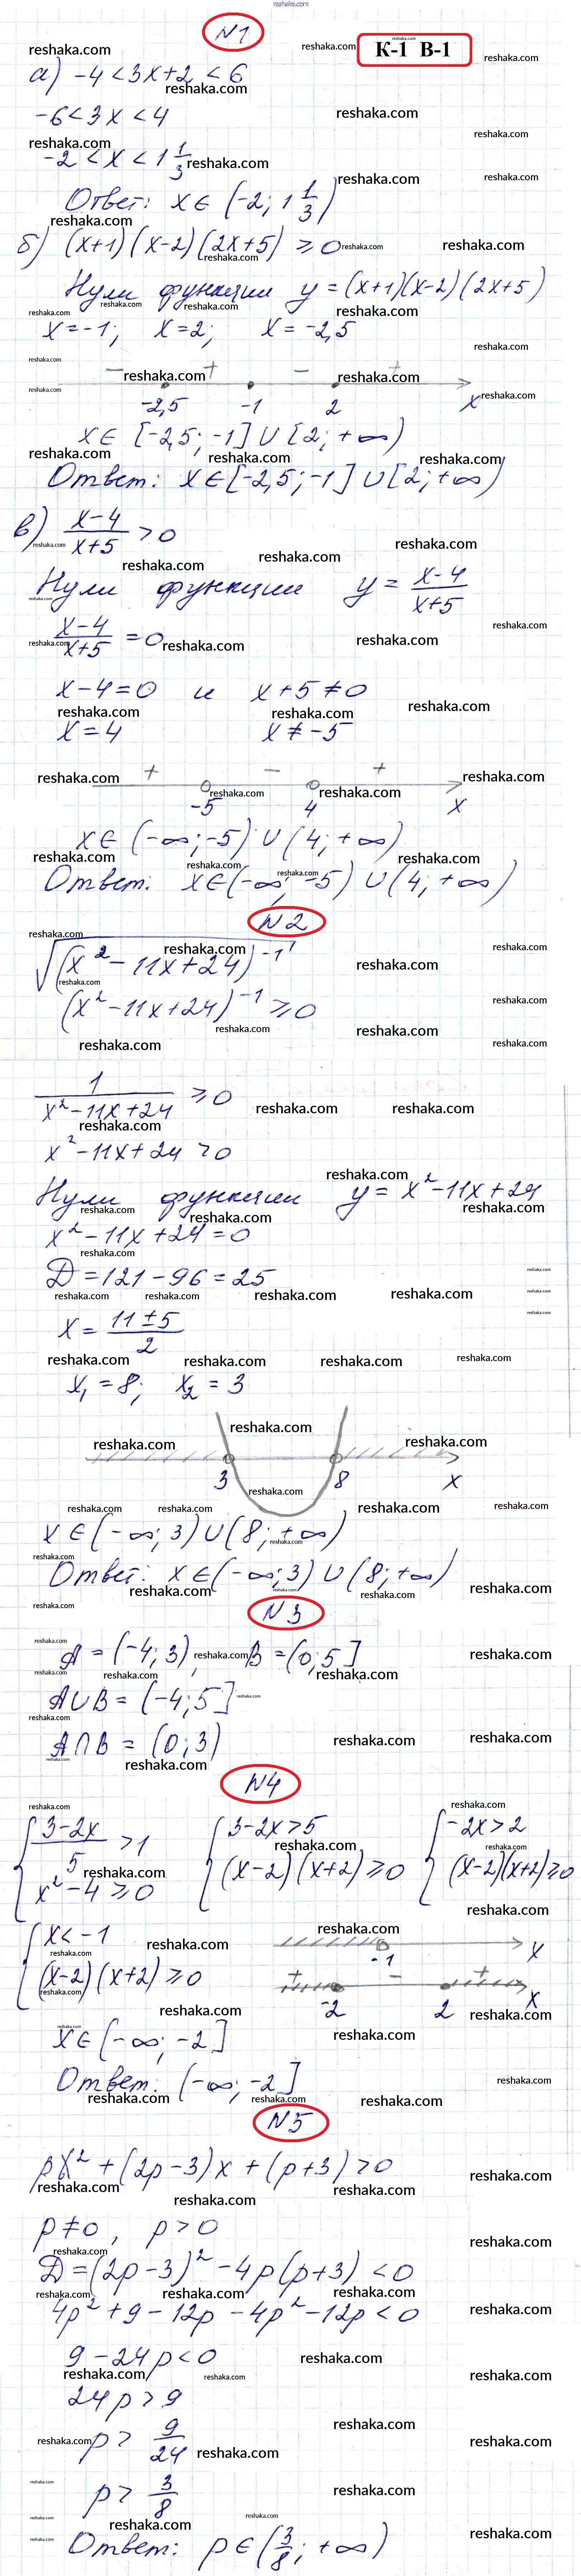 reshaka.com
N1
К-1 В-1
а) -4 < 3x+2 < 6
-6 < 3x < 4
-2 < x < 1 1/3
Ответ: x ∈ (-2; 1 1/3)
б) (x+1)(x-2)(2x+5) ≥ 0
Нули функции y = (x+1)(x-2)(2x+5)
x = -1; x = 2; x = -2,5
- + - +
-2,5 -1 2 x
x ∈ [-2,5; -1] ∪ [2; +∞)
Ответ: x ∈ [-2,5; -1] ∪ [2; +∞)
в) (x-4)/(x+5) > 0
Нули функции y = (x-4)/(x+5)
(x-4)/(x+5) = 0
x-4 = 0 и x+5 ≠ 0
x = 4 x ≠ -5
+ - +
-5 4 x
x ∈ (-∞; -5) ∪ (4; +∞)
Ответ: x ∈ (-∞; -5) ∪ (4; +∞)
N2
√((x² - 11x + 24)⁻¹)
(x² - 11x + 24)⁻¹ ≥ 0
1/(x² - 11x + 24) ≥ 0
x² - 11x + 24 > 0
Нули функции y = x² - 11x + 24
x² - 11x + 24 = 0
D = 121 - 96 = 25
x = (11 ± 5)/2
x₁ = 8; x₂ = 3
3 8 x
x ∈ (-∞; 3) ∪ (8; +∞)
Ответ: x ∈ (-∞; 3) ∪ (8; +∞)
N3
A = (-4; 3), B = (0; 5]
A∪B = (-4; 5]
A∩B = (0; 3)
N4
{ (3-2x)/5 > 1 { 3-2x > 5 { -2x > 2
x² - 4 ≥ 0 (x-2)(x+2) ≥ 0 (x-2)(x+2) ≥ 0
{ x < -1 -1 x
(x-2)(x+2) ≥ 0 + - + -2 2 x
x ∈ (-∞; -2]
Ответ: (-∞; -2]
N5
px² + (2p-3)x + (p+3) > 0
p ≠ 0, p > 0
D = (2p-3)² - 4p(p+3) < 0
4p² + 9 - 12p - 4p² - 12p < 0
9 - 24p < 0
24p > 9
p > 9/24
p > 3/8
Ответ: p ∈ (3/8; +∞)